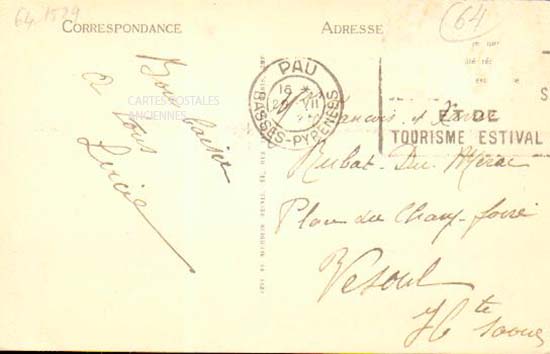 64 1529
CORRESPONDANCE
ADRESSE
64
Bons baisers
à tous
Lucie
CARTES POSTALES
ANCIENNES
PAU
16
VII
BASSES-PYRENEES
ET DE
TOURISME ESTIVAL
S
François
Rubat Du Mérac
Place du Champ foire
Vesoul
Hte Saone